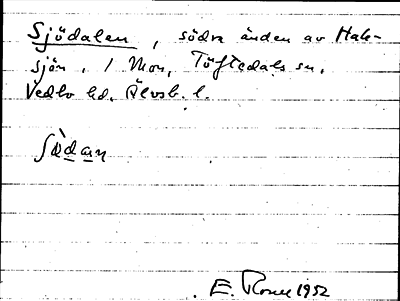 Sjödalen, södra änden av Hale-
sjön. 1 Mon, Töftedals sn.
Vedbo hd. Älvsb. l.
E. 1952